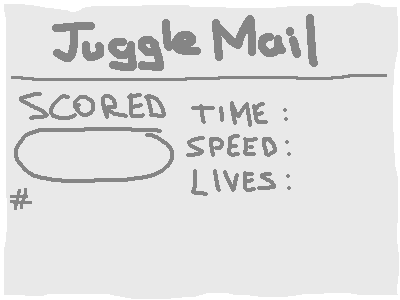 Juggle Mail
SCORED
TIME :
SPEED :
LIVES :
#